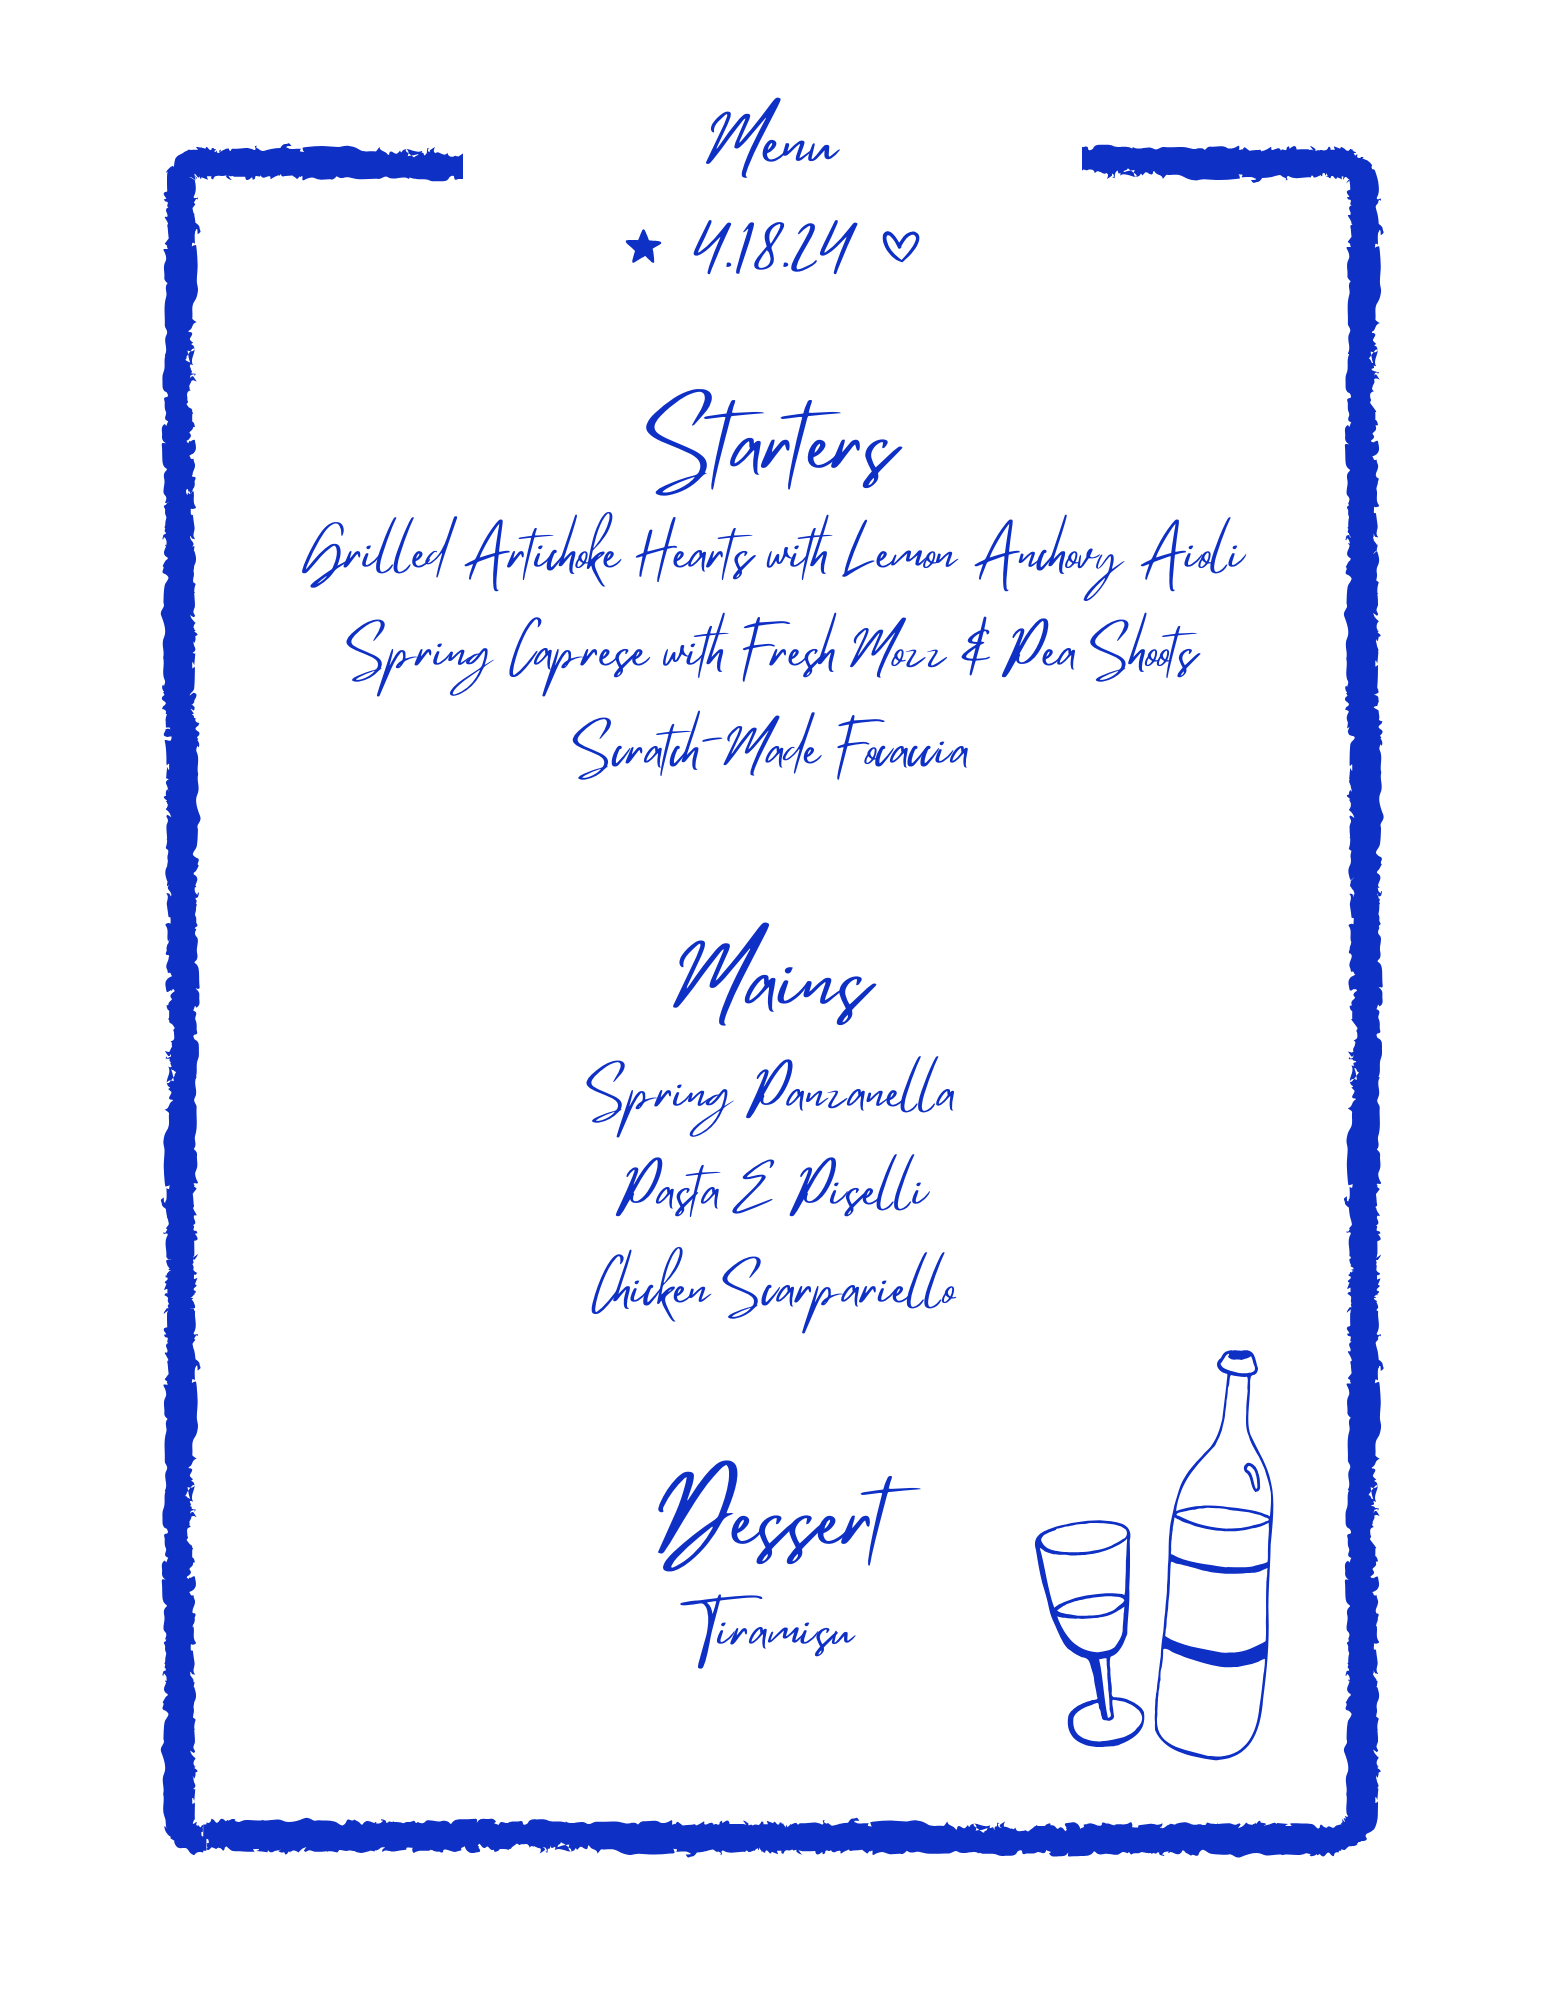 Menu
4.18.24
Starters
Grilled Artichoke Hearts with Lemon Anchovy Aioli
Spring Caprese with Fresh Mozz & Pea Shoots
Scratch-Made Focaccia
Mains
Spring Panzanella
Pasta E Piselli
Chicken Scarpariello
Dessert
Tiramisu